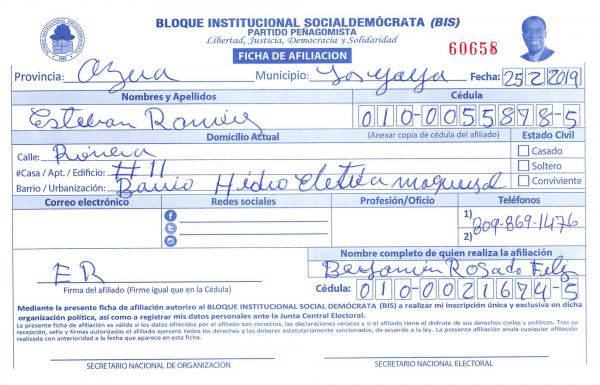 BLOQUE INSTITUCIONAL SOCIALDEMÓCRATA (BIS)
PARTIDO PEÑAGOMISTA
Libertad, Justicia, Democracia y Solidaridad
FICHA DE AFILIACION
60658
Provincia: Azua Municipio: Fecha: 25/2/2019
Nombres y Apellidos Cédula
Esteban Ramirez 010-0055878-5
Domicilio Actual (Anexar copia de cédula del afiliado) Estado Civil
Calle: Primera
Casado
#Casa / Apt. / Edificio: #11
Soltero
Barrio / Urbanización: Barrio Hidro Eletrica
Conviviente
Correo electrónico Redes sociales Profesión/Oficio Teléfonos
1) 809-869-1476
2)
Nombre completo de quien realiza la afiliación
ER Benjamin Rosado Feliz
Firma del afiliado (Firme igual que en la Cédula) Cédula: 010-0021674-5
Mediante la presente ficha de afiliación autorizo al BLOQUE INSTITUCIONAL SOCIAL DEMÓCRATA (BIS) a realizar mi inscripción única y exclusiva en dicha
organización política, así como a registrar mis datos personales ante la Junta Central Electoral.
La presente ficha de afiliación es válida si los datos ofrecidos por el afiliado son correctos, las declaraciones veraces y si el afiliado tiene el disfrute de sus derechos civiles y políticos. Tras su
recepción, sello y firmas autorizadas el afiliado ejercerá todos los derechos y los deberes estatutariamente sancionados, de acuerdo a la ley. La presente afiliación anula cualquier afiliación
realizada con anterioridad a la fecha que aparece en esta ficha.
SECRETARIO NACIONAL DE ORGANIZACIÓN SECRETARIO NACIONAL ELECTORAL